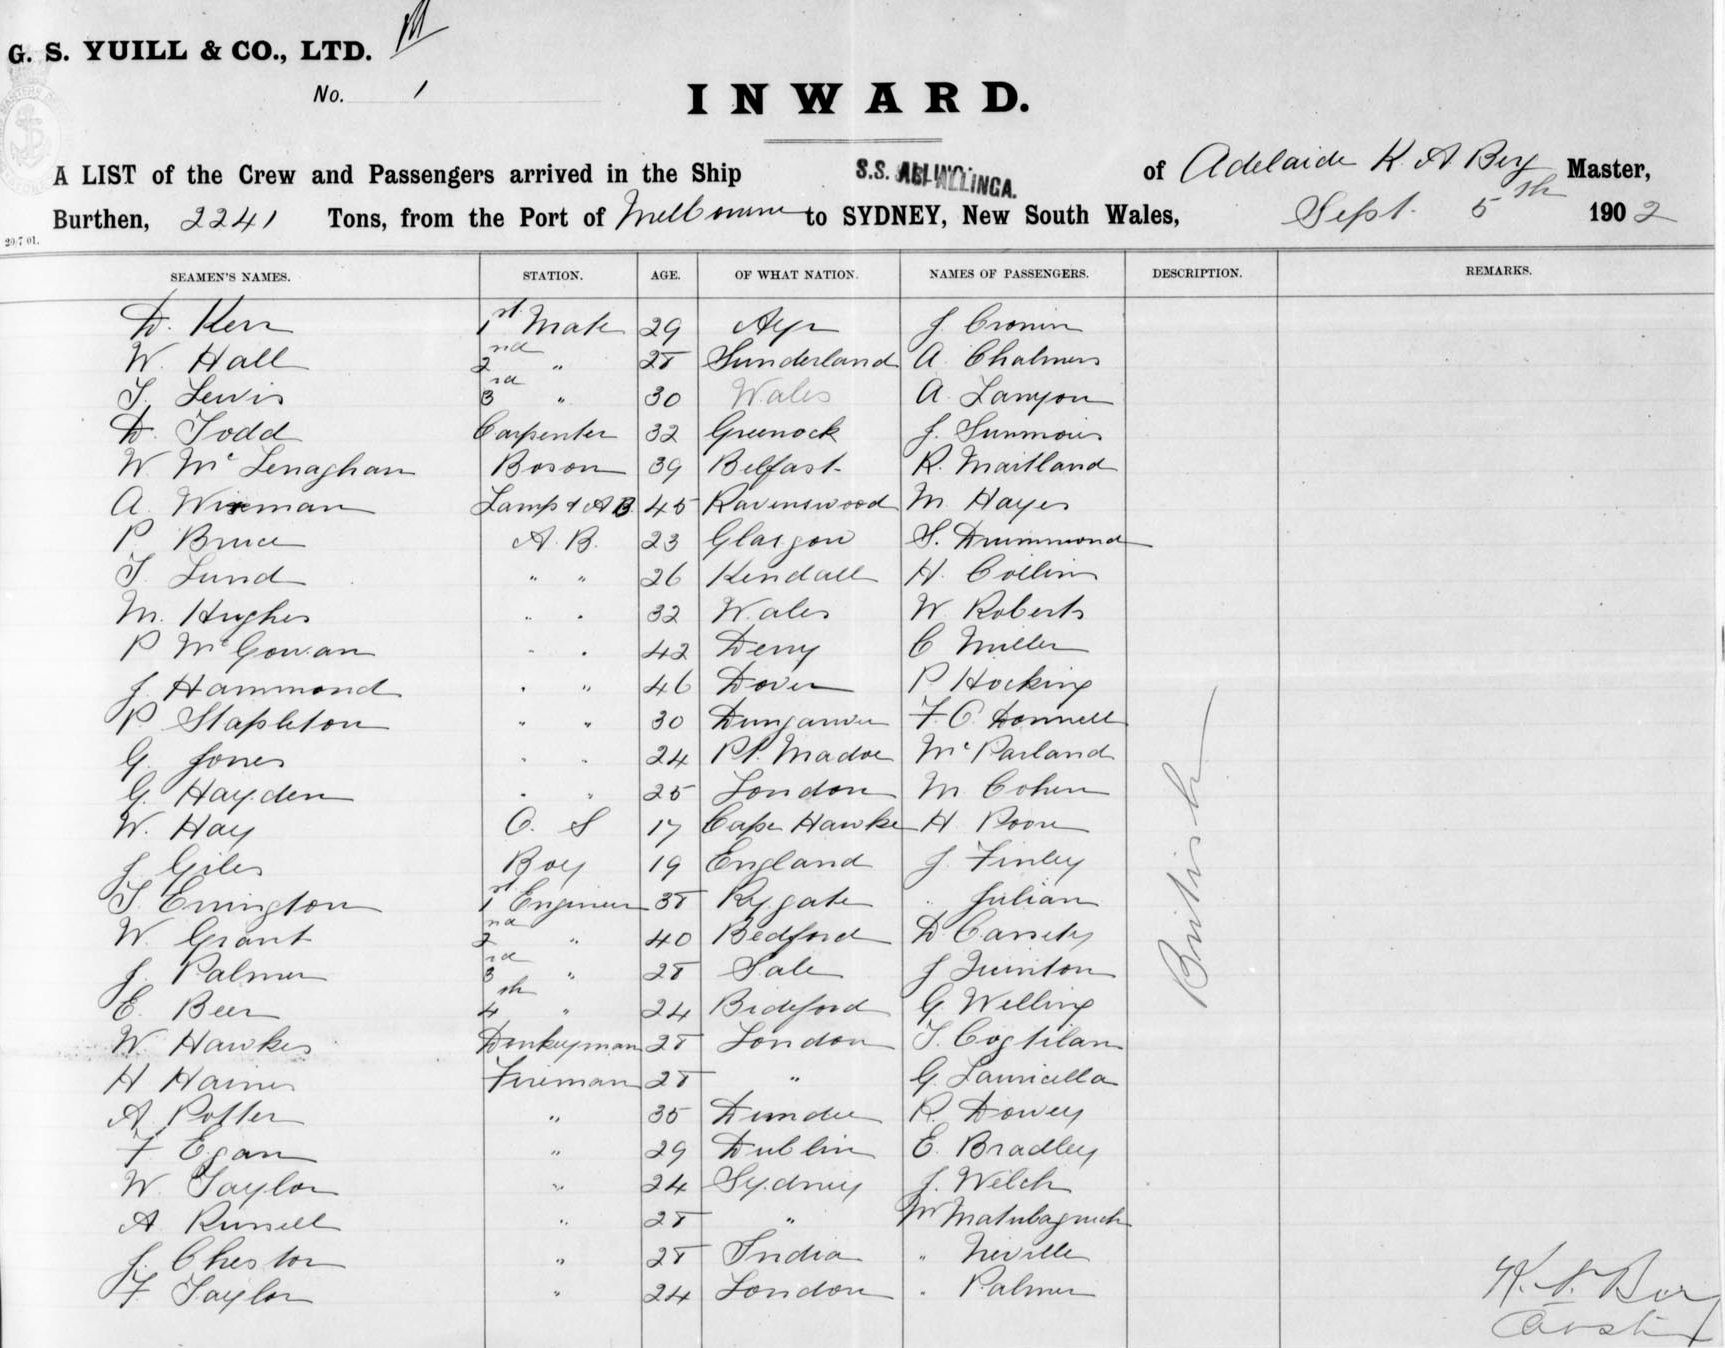 G. S. YUILL & CO., LTD.
No. 1
INWARD.
A LIST of the Crew and Passengers arrived in the Ship S.S. ALLINGA. of Adelaide K. A Bery Master,
Burthen, 2241 Tons, from the Port of Melbourne to SYDNEY, New South Wales, Sept. 5th 1902
29/7/01.
SEAMEN'S NAMES. STATION. AGE. OF WHAT NATION. NAMES OF PASSENGERS. DESCRIPTION. REMARKS.
D. Kerr 1st Mate 29 Ayr J. Cronin
W. Hall 2nd " 28 Sunderland A. Chalmers
T. Lewis 3rd " 30 Wales A. Lanyon
D. Todd Carpenter 32 Greenock J. Summons
W. McLenaghan Boson 39 Belfast R. Maitland
A. Wixman Lamp & A B. 45 Ravenswood M Hayes
P. Bruce A. B. 23 Glasgow S. Drummond
T. Lund " " 26 Kendall H. Collins
M. Hughes " " 32 Wales W Roberts
P McGowan " " 42 Derry C Miller
J. Hammond " " 46 Dover P Hocking
P Stapleton " " 30 Dungarven F. O. Donnell
G. Jones " " 24 Pt. Madoc McParland
G. Hayden " " 25 London M Cohen
W. Hay O. S 17 Cape Hawke H Poore
J Giles Boy 19 England J. Finley
T. Errington 1st Engineer 38 Rygate " Julian
W. Grant 2nd " 40 Bedford D Cassety
J. Palmer 3rd " 28 Sale J Quinton
E. Beer 4th " 24 Bideford G Welling
W. Hawkes Donkeyman 28 London T. Coghlan
H Haines Fireman 28 " G. Lauricella
A Potter " 35 Dundee R. Dowey
F Egan " 29 Dublin E. Bradley
W. Taylor " 24 Sydney J. Welch
A Russell " 28 " W
J. Chester " 28 India " Neville
F Taylor " 24 London " Palmer
British
K. A. Bery